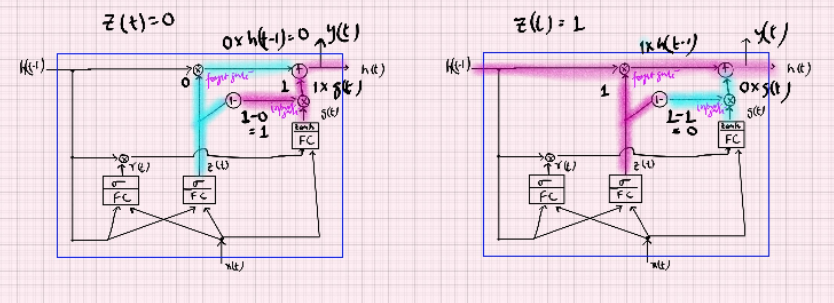 z(t)=0
0×h(t-1)=0
y(t)
h(t-1)
h(t)
0
forget gate
1
1×g(t)
1-
input gate
1-0
=1
g(t)
tanh
FC
r(t)
z(t)
σ
FC
σ
FC
x(t)
z(t)=1
1×h(t-1)
y(t)
h(t-1)
h(t)
1
forget gate
0×g(t)
1-
input gate
1-1
=0
g(t)
tanh
FC
r(t)
z(t)
σ
FC
σ
FC
x(t)